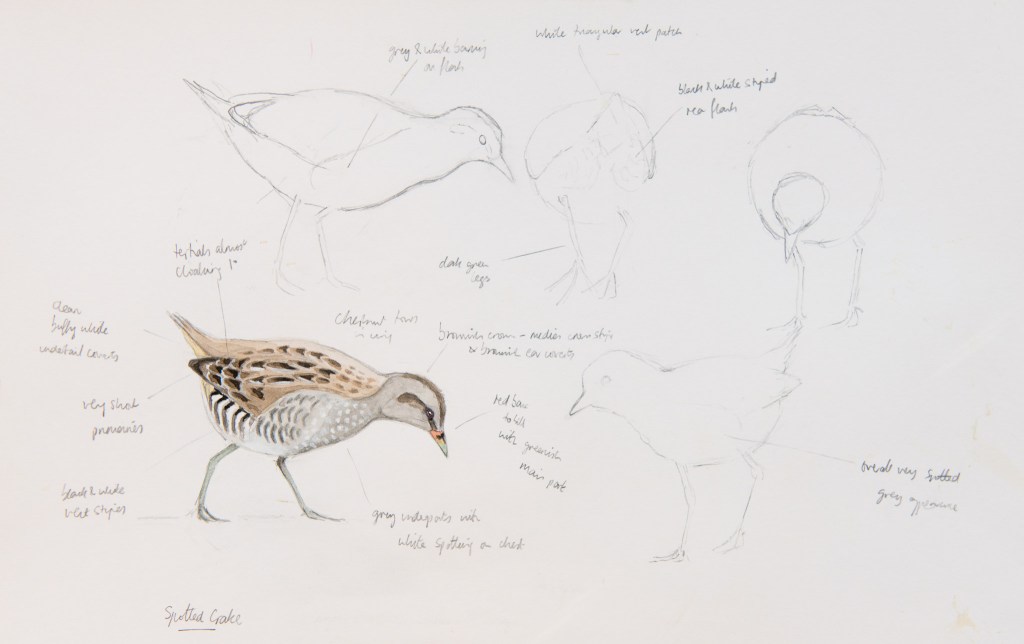 white triangular vent patch
grey & white barring
on flank
black & white striped
rear flank
dark green
legs
tertials almost
cloaking 1°
clean
buffy white
undertail coverts
chestnut tones
in wing
brownish crown - median crown stripe
& brownish ear coverts
very short
primaries
red base
to bill
with greenish
main part
overall very spotted
grey appearance
black & white
vent stripes
grey underparts with
white spotting on chest
Spotted Crake